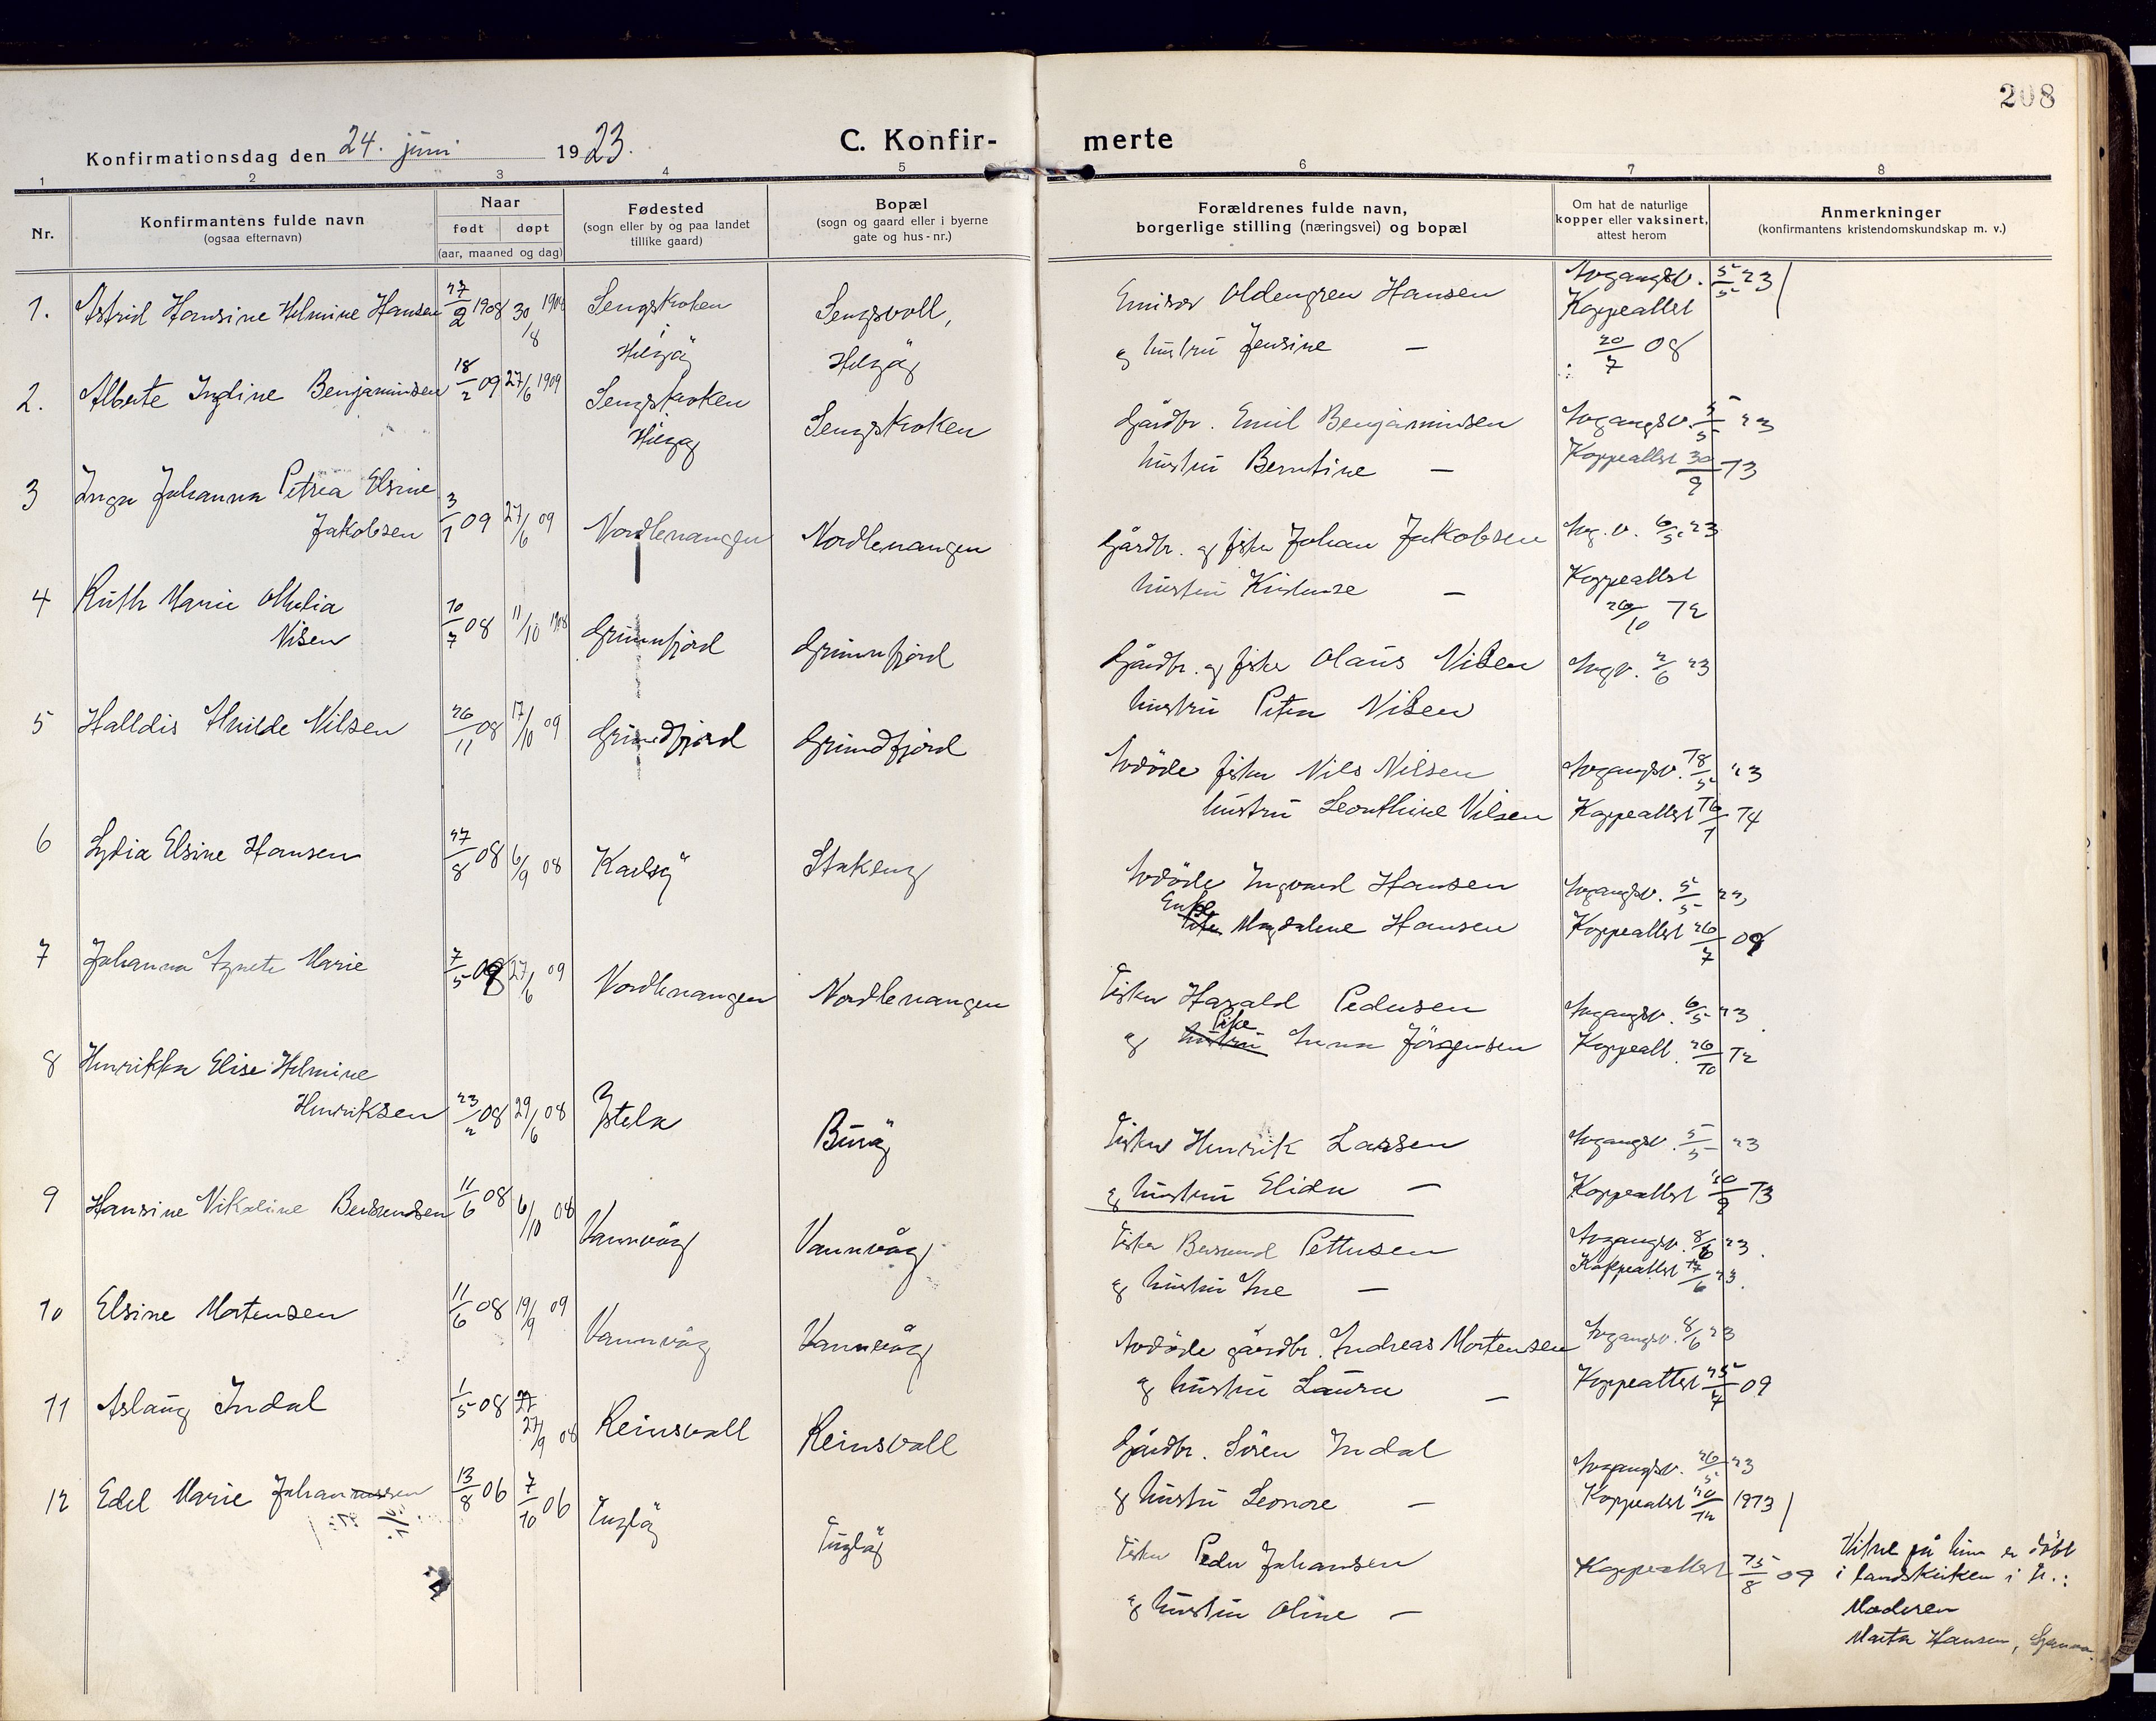 208
Konfirmationsdag den 24. juni 1923.
C. Konfir-
merte
1 2 3 4 5 6 7 8
Nr.
Konfirmantens fulde navn
(ogsaa efternavn)
Naar
født døpt
(aar, maaned og dag)
Fødested
(sogn eller by og paa landet
tillike gaard)
Bopæl
(sogn og gaard eller i byerne
gate og hus-nr.)
Forældrenes fulde navn,
borgerlige stilling (næringsvei) og bopæl
Om hat de naturlige
kopper eller vaksinert,
attest herom
Anmerkninger
(konfirmantens kristendomskundskap m. v.)
1. Astrid Hansine Helmine Hansen 27/2 1908 30/8
Helgöy
Helgöy
Oldengren Hansen
og hustru Jensine —
Koppeattest
20/7 08
2. Alberte Ingline Benjaminsen 18/2 09 27/6 1909
Helgöy
Gårdbr. Emil Benjaminsen
hustru Berntine —
Avgangsv. 5/5 23
Koppeattest 30/9 13
3 Inga Johanna Petrea Elsine
Jakobsen 3/1 09 27/6 09 Nordlenangen Nordlenangen
Gårdbr. og fisker Johan Jakobsen
hustru —
Avg.v. 6/5 23
Koppeattest
26/10 12
4 Ruth Marie Othelia
Nilsen 10/7 08 11/10 1908 Grunnfjord Grunnfjord
Gårdbr. og fisker Olaus Nilsen
hustru Petra Nilsen
Avgv. 2/6 23
5 Halldis Nilsen 26/11 08 17/10 09 Grundfjord Grundfjord
Avdöde fisker Nils Nilsen
hustru Leonthine Nilsen
Avgangsv. 18/5 23
Koppeattest 16/1 14
6 Lydia Elsine Hansen 27/8 08 6/9 08 Karlsöy Stakeng
Avdöde Ingvard Hansen
Enke Magdalene Hansen
Avgangsv. 5/5 23
Koppeattest 26/7 09
7 Johanna Agnete Marie 7/5 09 27/6 09 Nordlenangen Nordlenangen
Fisker Harald Pedersen
og hustru Pike Anna Jörgensen
Avgangsv. 6/5 23
Koppeatt. 26/10 12
8 Henrikka Elise Helmine
Henriksen 23/2 08 29/6 08 Burøy
Fisker Henrik Larsen
og hustru Elida —
Avgangsv. 5/5 23
Koppeattest 13
9 Hansine Nikoline Berntsen 11/6 08 6/10 08 Vannvåg Vannvåg
Fisker Pettersen
og hustru Ane —
Avgangsv. 8/6 23.
Koppeattest 17/6 23.
10 Elsine Mortensen 11/6 08 19/9 09 Vannvåg Vannvåg
Avdöde gårdbr. Andreas Mortensen
og hustru Laura —
Avgangsv. 8/6 23
Koppeattest 09
11 Aslaug Indal 1/5 08 27/9 08 Reinsvoll Reinsvoll
Gårdbr. Sören Indal
og hustru Leonore —
Avgangsv. 26/5 23
Koppeattest 1913
12 Edel Marie Johannessen 13/8 06 7/10 06
Fisker Peder Johansen
og hustru Oline —
Koppeattest 15/8 09
Vitne på hun er döbt
i landskirken i Tr.:
Moderen
Marta Hansen,